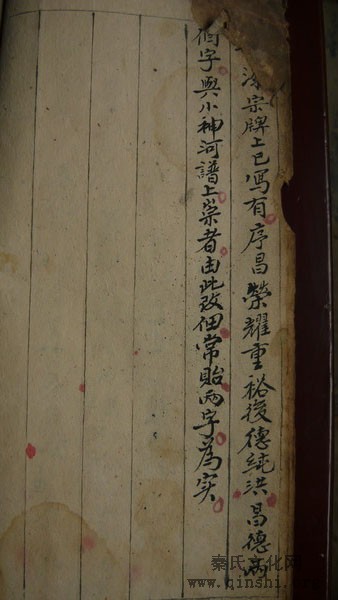 宗牌上已寫有序昌榮耀重裕後德純洪昌德兩
個字與小神河譜上崇者由此改佃常貽兩字為实
秦氏文化网
www.qinshi.